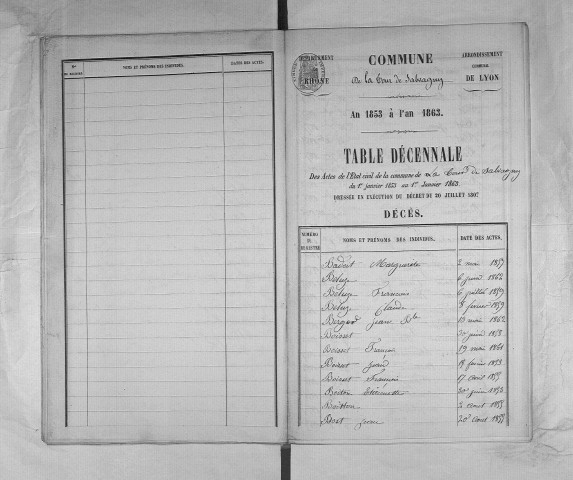 Nos
DU REGISTRE.
NOMS ET PRÉNOMS DES INDIVIDUS.
DATES DES ACTES.
DÉPARTEMENT
RHÔNE
COMMUNE
De la Tour de Salvagny
ARRONDISSEMENT
COMMUNAL
DE LYON
An 1853 à l'an 1863.
TABLE DÉCENNALE
Des Actes de l'État civil de la commune de La Tour de Salvagny
du 1er janvier 1853 au 1er Janvier 1863.
DRESSÉE EN EXÉCUTION DU DÉCRET DU 20 JUILLET 1807.
DÉCÈS.
NUMÉRO
DU
REGISTRE
NOMS ET PRÉNOMS DES INDIVIDUS.
DATE DES ACTES.
Marguerite 2 mai 1857
6 juin 1862
François 6 juillet 1859
Claude 8 février 1859
Jean Bte 13 mai 1862
Boisset 20 juin 1853
Boisset François 19 mai
Boisset 18 février 1853
Boisset François 17 avril 1855
30 juin
2 aout 1855
20 aout 1857